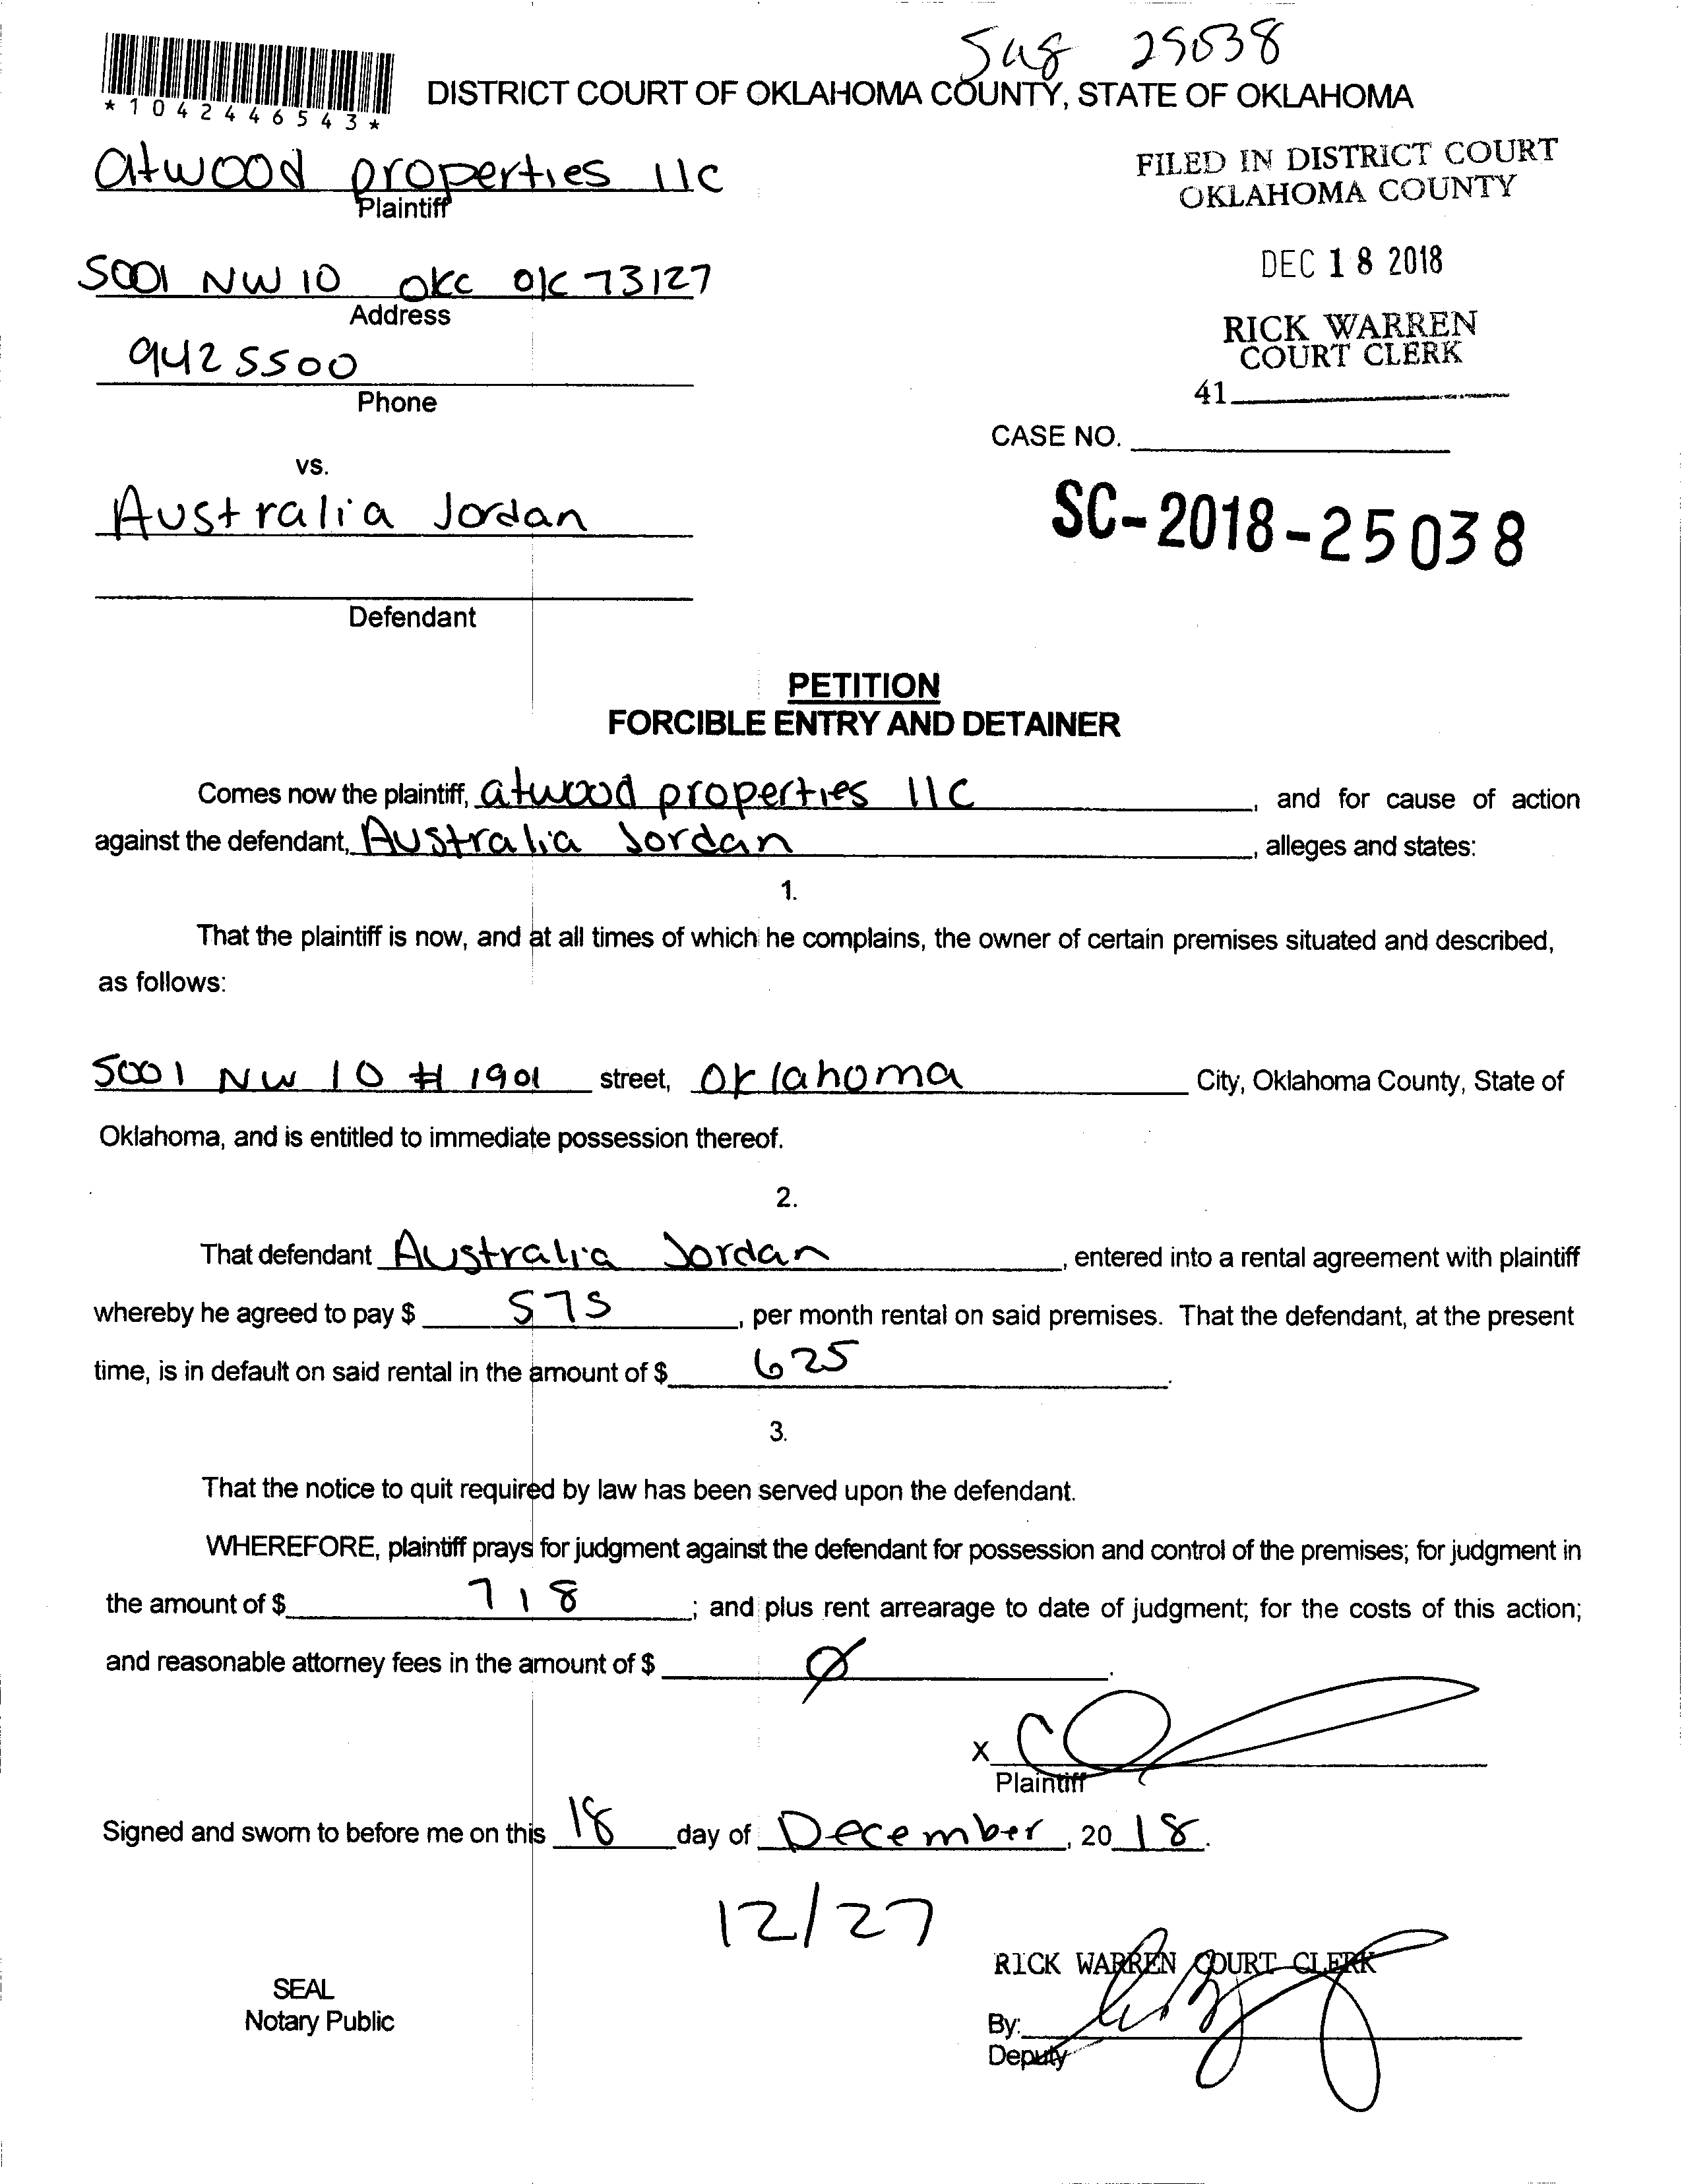 25038
*1042446543*
DISTRICT COURT OF OKLAHOMA COUNTY, STATE OF OKLAHOMA
atwood properties llc
Plaintiff
FILED IN DISTRICT COURT
OKLAHOMA COUNTY
5001 NW 10 okc ok 73127
Address
DEC 18 2018
9425500
Phone
RICK WARREN
COURT CLERK
41
CASE NO.
vs.
Australia Jordan
SC-2018-25038
Defendant
PETITION
FORCIBLE ENTRY AND DETAINER
Comes now the plaintiff, atwood properties llc, and for cause of action
against the defendant, Australia Jordan, alleges and states:
1.
That the plaintiff is now, and at all times of which he complains, the owner of certain premises situated and described,
as follows:
5001 NW 10 # 1901 street, Oklahoma City, Oklahoma County, State of
Oklahoma, and is entitled to immediate possession thereof.
2.
That defendant Australia Jordan, entered into a rental agreement with plaintiff
whereby he agreed to pay $ 575, per month rental on said premises. That the defendant, at the present
time, is in default on said rental in the amount of $ 625.
3.
That the notice to quit required by law has been served upon the defendant.
WHEREFORE, plaintiff prays for judgment against the defendant for possession and control of the premises; for judgment in
the amount of $ 718; and plus rent arrearage to date of judgment; for the costs of this action;
and reasonable attorney fees in the amount of $ Ø.
X
Plaintiff
Signed and sworn to before me on this 18 day of December, 20 18.
12/27
RICK WARREN COURT CLERK
SEAL
Notary Public
By:
Deputy